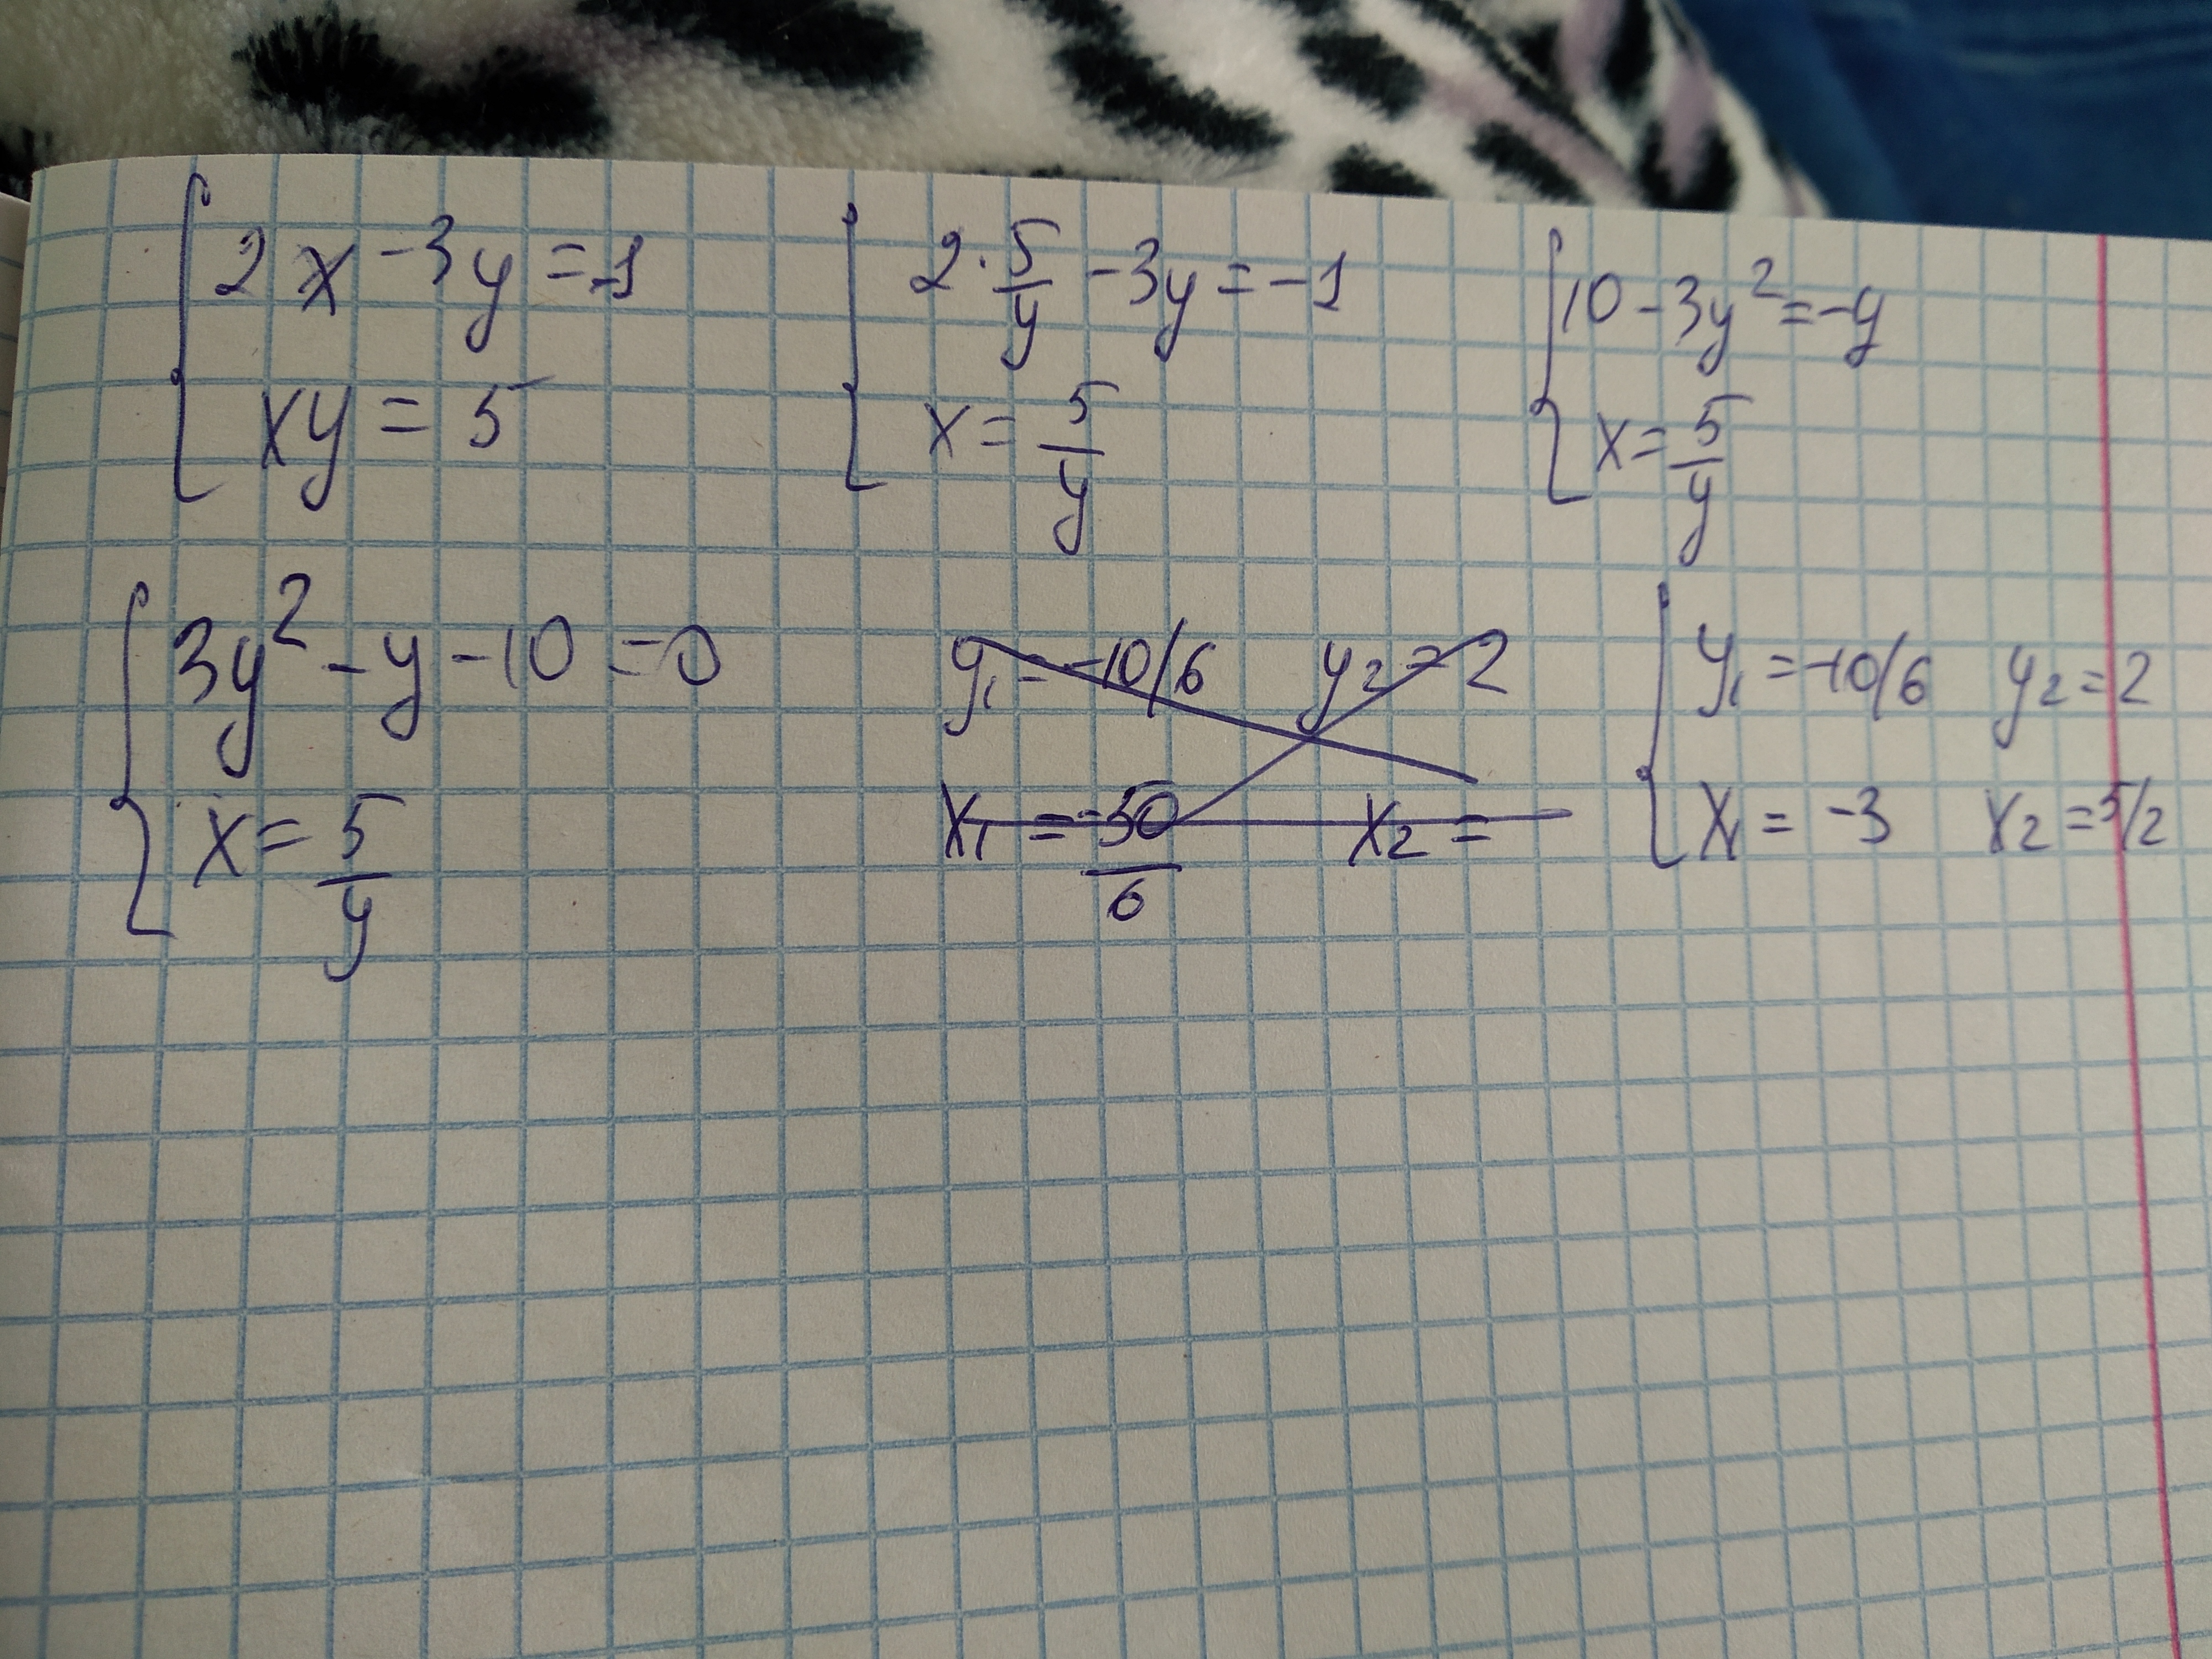 2x - 3y = -1
xy = 5
2 · 5/y - 3y = -1
x = 5/y
10 - 3y² = -y
x = 5/y
3y² - y - 10 = 0
x = 5/y
y₁ = -10/6 y₂ = 2
x₁ = -50/6 x₂ =
y₁ = -10/6 y₂ = 2
x₁ = -3 x₂ = 5/2